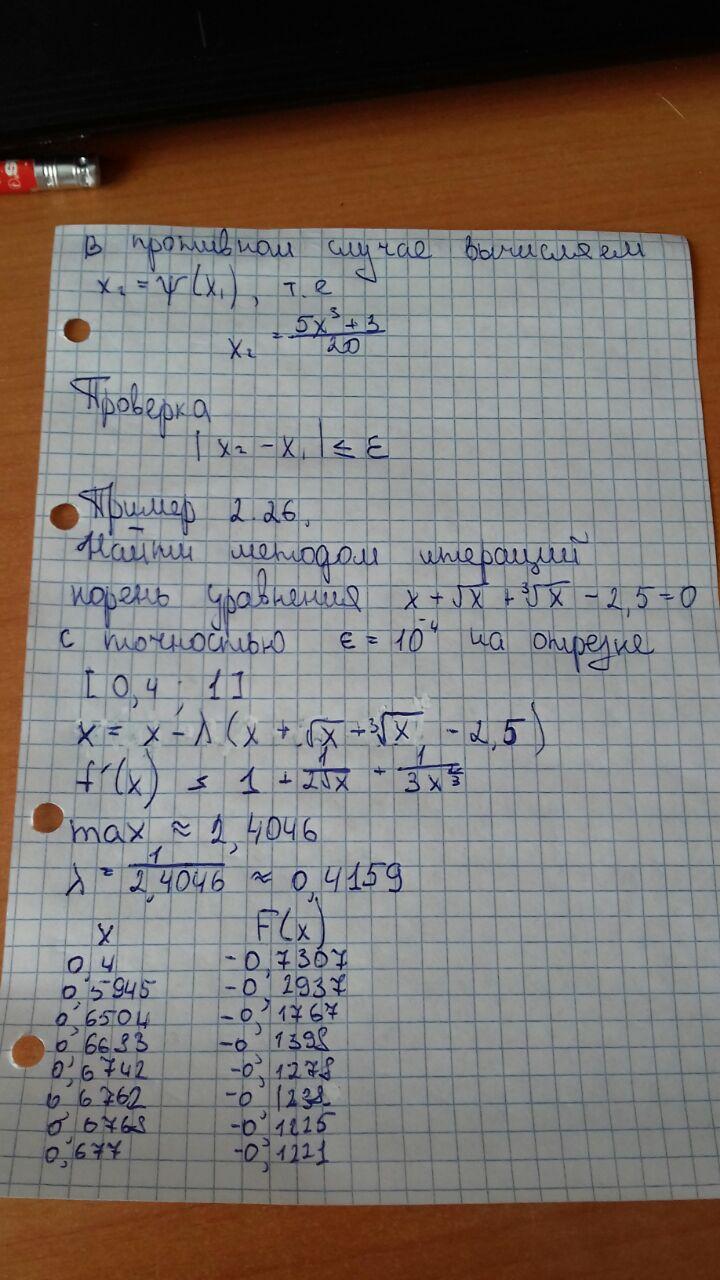 В противном случае вычисляем
x₂ = ψ(x₁), т.е
x₂ = (5x³ + 3)/20
Проверка
|x₂ - x₁| ≤ ε
Пример 2.26.
Найти методом итераций
корень уравнения x + √x + ³√x - 2,5 = 0
с точностью ε = 10⁻⁴ на отрезке
[0,4 ; 1]
x = x - λ(x + √x + ³√x - 2,5)
f'(x) = 1 + 1/(2√x) + 1/(3x^(2/3))
max ≈ 2,4046
λ = 1/2,4046 ≈ 0,4159
x F(x)
0,4 -0,7307
0,5945 -0,2937
0,6504 -0,1767
0,6683 -0,1398
0,6742 -0,1278
0,6762 -0,1238
0,6768 -0,1225
0,677 -0,1221